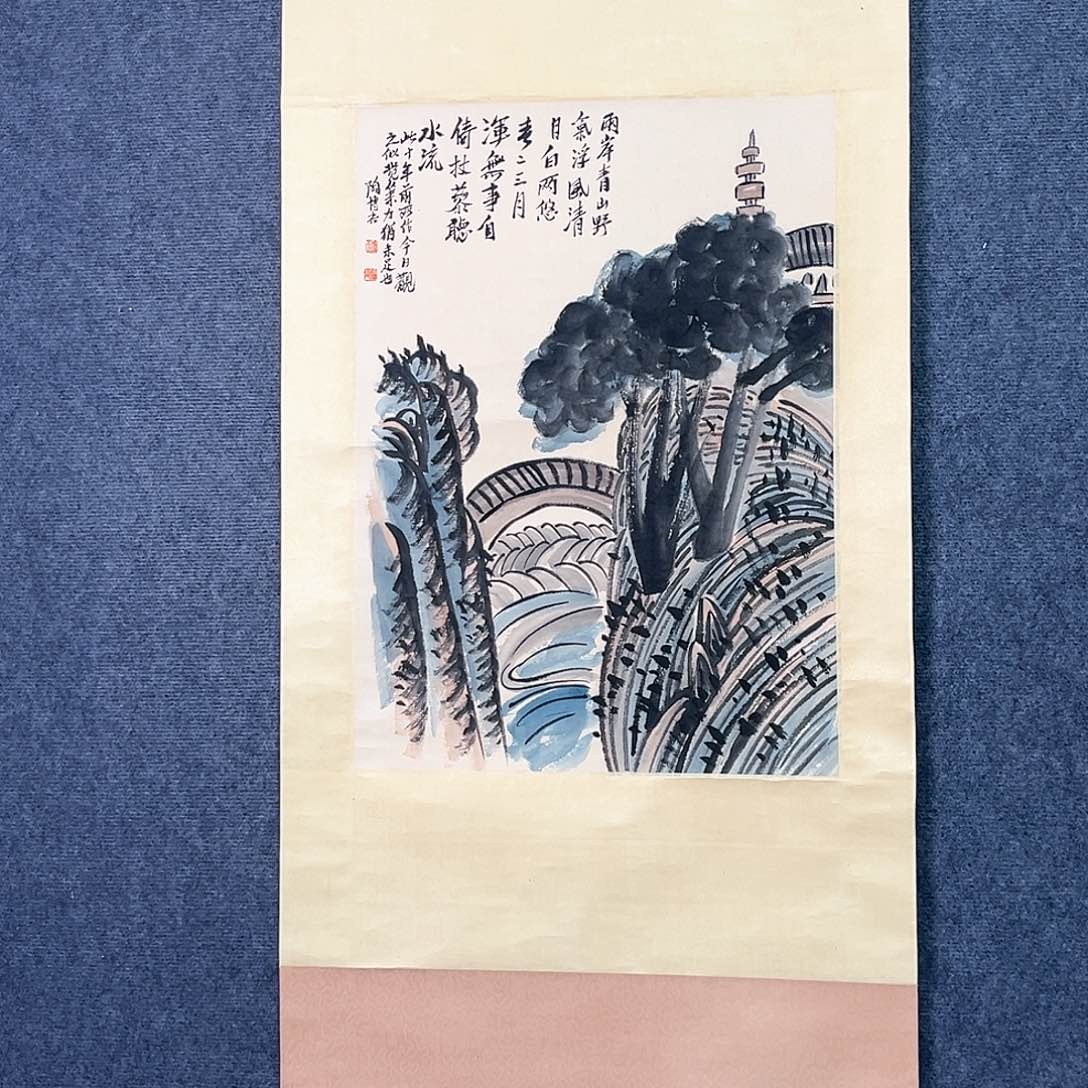 兩岸青山野
氣浮風清
月白兩悠
春二三月
渾無事自
倚杖藜聽
水流
此十年前所作今日觀
之似覺筆力猶未足也
陶博吾